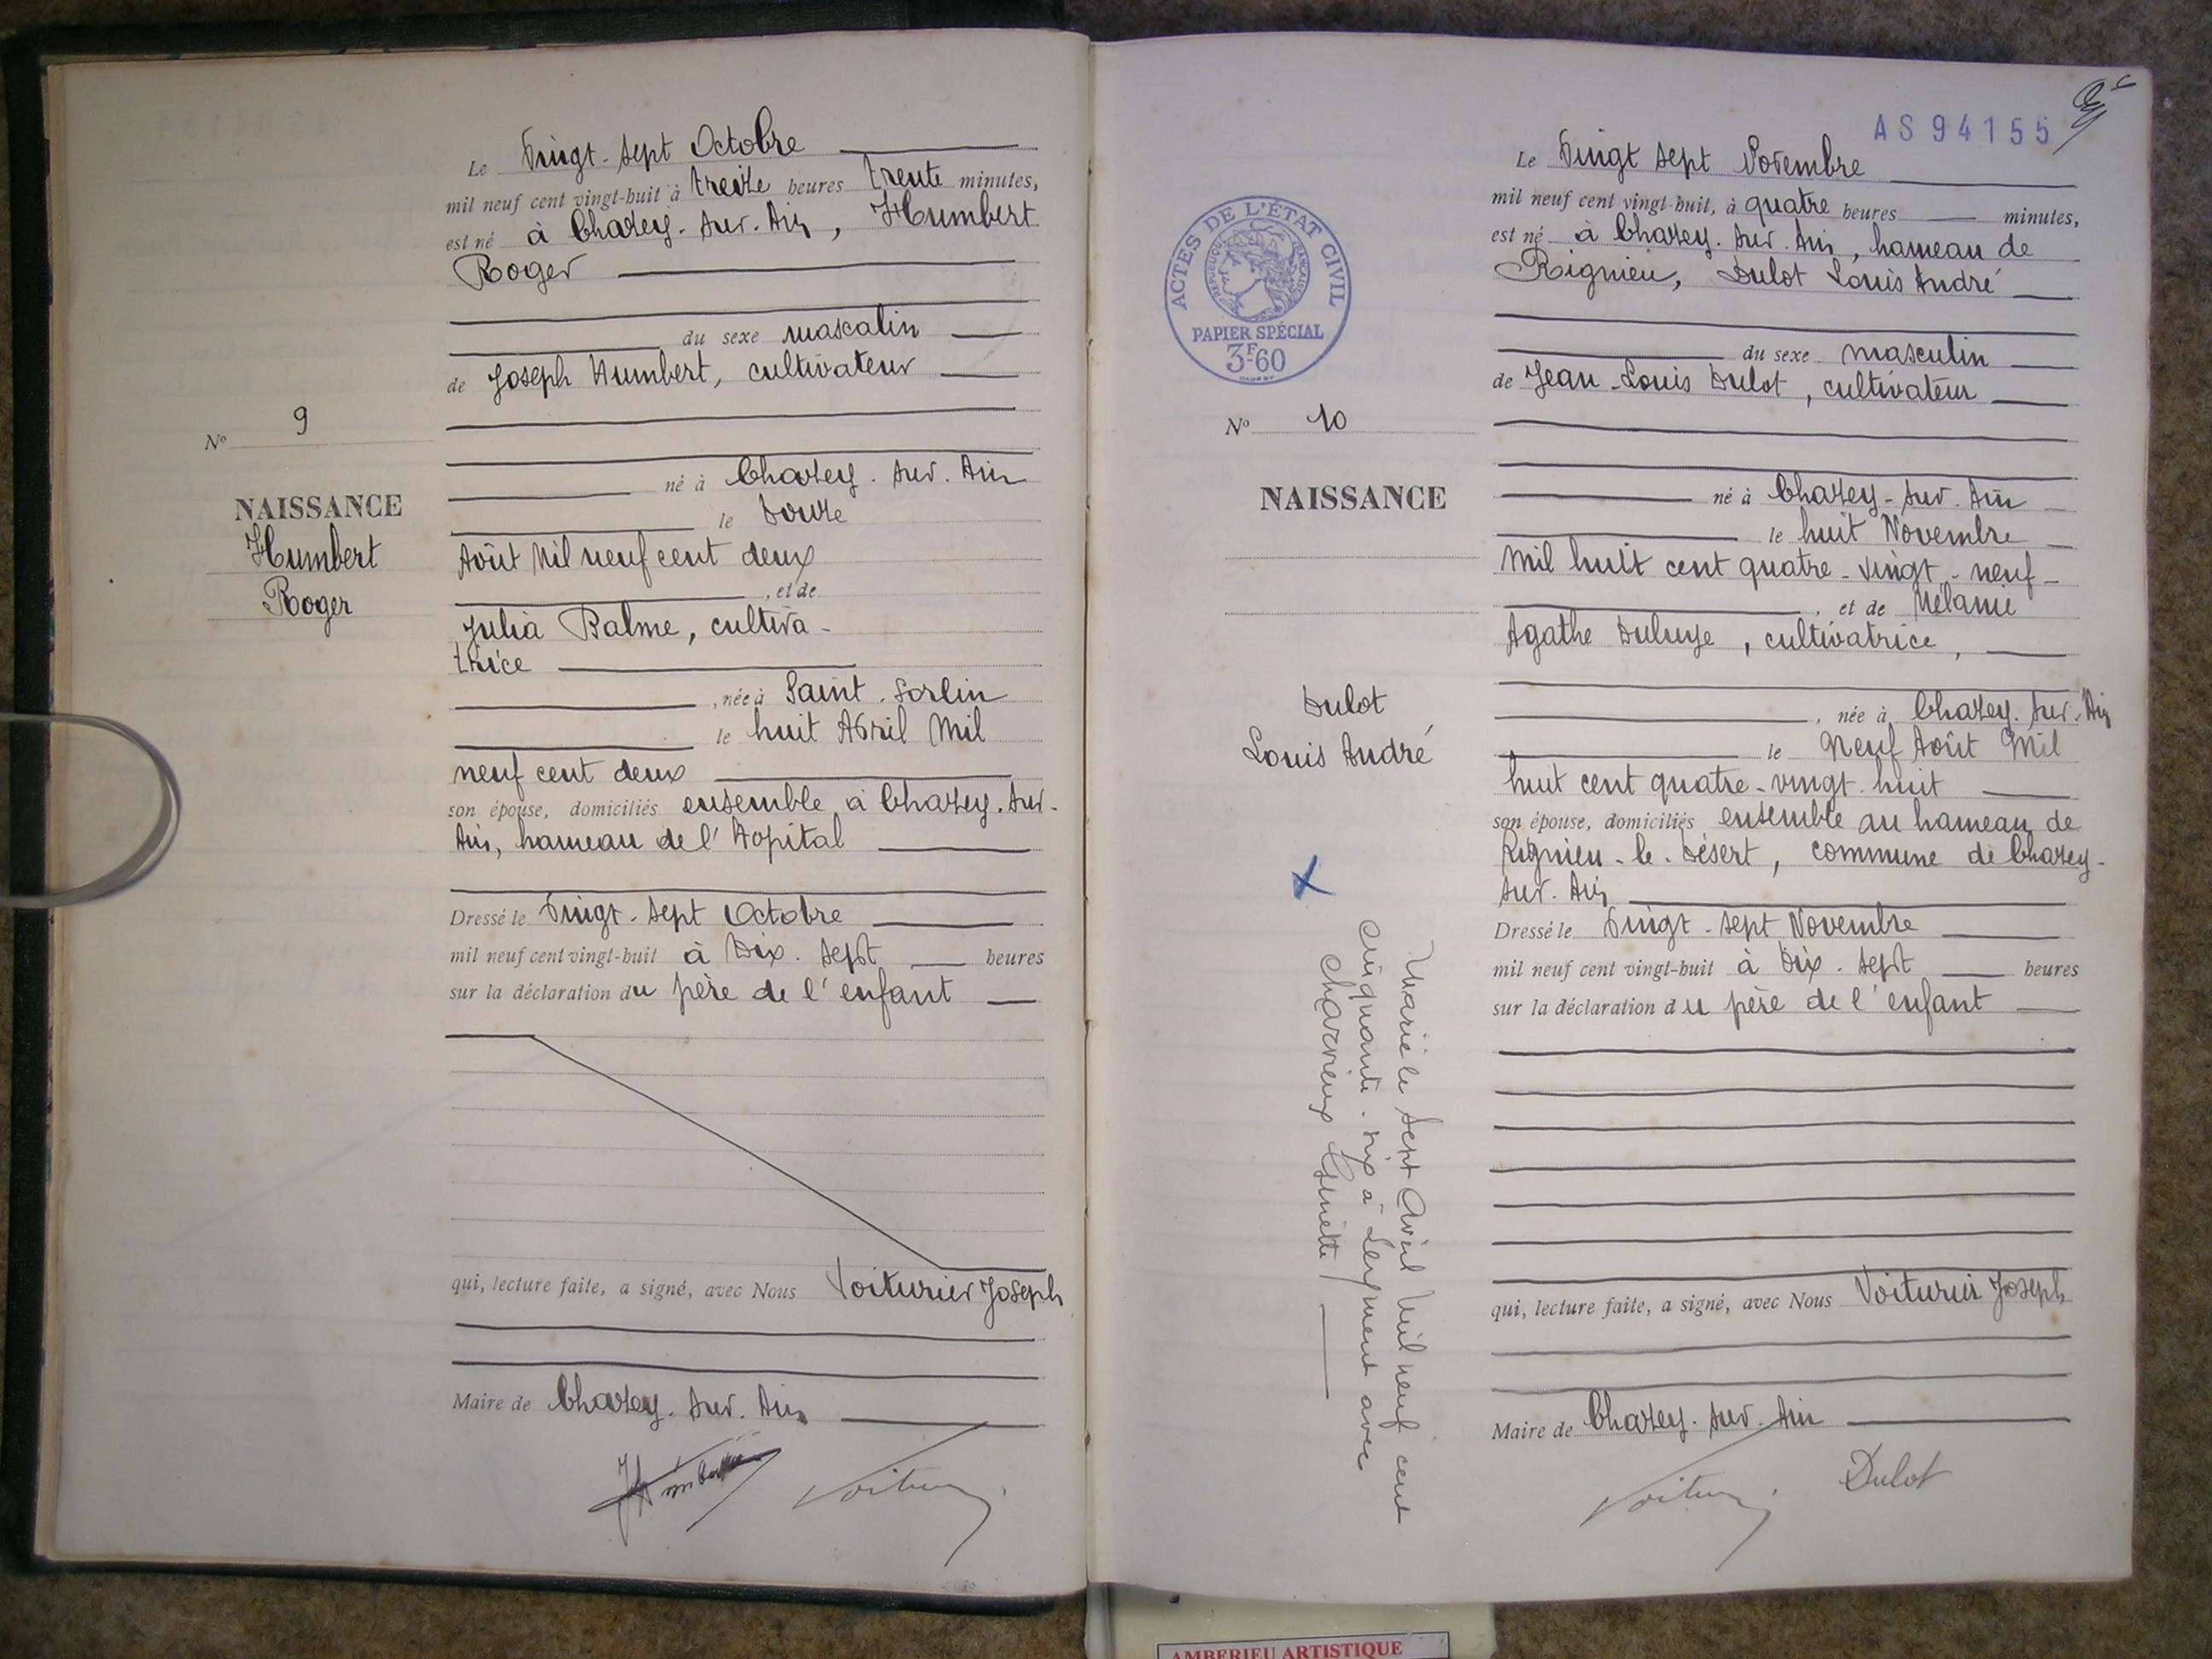 Le Vingt-sept Octobre
mil neuf cent vingt-huit à treize heures trente minutes,
est né à Chazey-sur-Ain, Humbert
Roger
du sexe masculin
de Joseph Humbert, cultivateur
né à Chazey-sur-Ain
le Douze
Août Mil neuf cent deux
, et de
Julia Balme, cultiva-
trice
, née à Saint-Sorlin
le huit Avril Mil
neuf cent deux
son épouse, domiciliés ensemble à Chazey-sur-
Ain, hameau de l'Hopital
Dressé le Vingt-sept Octobre
mil neuf cent vingt-huit à Dix-sept heures
sur la déclaration du père de l'enfant
qui, lecture faite, a signé, avec Nous Voiturier Joseph
Maire de Chazey-sur-Ain
No 9
NAISSANCE
Humbert
Roger
AS 94155
ACTES DE L'ÉTAT CIVIL
RÉPUBLIQUE FRANÇAISE
PAPIER SPÉCIAL
3F60
No 10
NAISSANCE
Dulot
Louis André
Marié le sept Avril Mil neuf cent
cinquante-six à Leyment avec
Charvieux Ginette
Le Vingt sept Novembre
mil neuf cent vingt-huit, à quatre heures minutes,
est né à Chazey-sur-Ain, hameau de
Rignieu, Dulot Louis André
du sexe masculin
de Jean-Louis Dulot, cultivateur
né à Chazey-sur-Ain
le huit Novembre
Mil huit cent quatre-vingt-neuf
, et de Mélanie
Agathe Duluye, cultivatrice,
, née à Chazey-sur-Ain
le Neuf Août Mil
huit cent quatre-vingt-huit
son épouse, domiciliés ensemble au hameau de
Rignieu-le-Désert, commune de Chazey-
sur-Ain
Dressé le Vingt-sept Novembre
mil neuf cent vingt-huit à Dix-sept heures
sur la déclaration du père de l'enfant
qui, lecture faite, a signé, avec Nous Voiturier Joseph
Maire de Chazey-sur-Ain
Dulot
AMBERIEU ARTISTIQUE